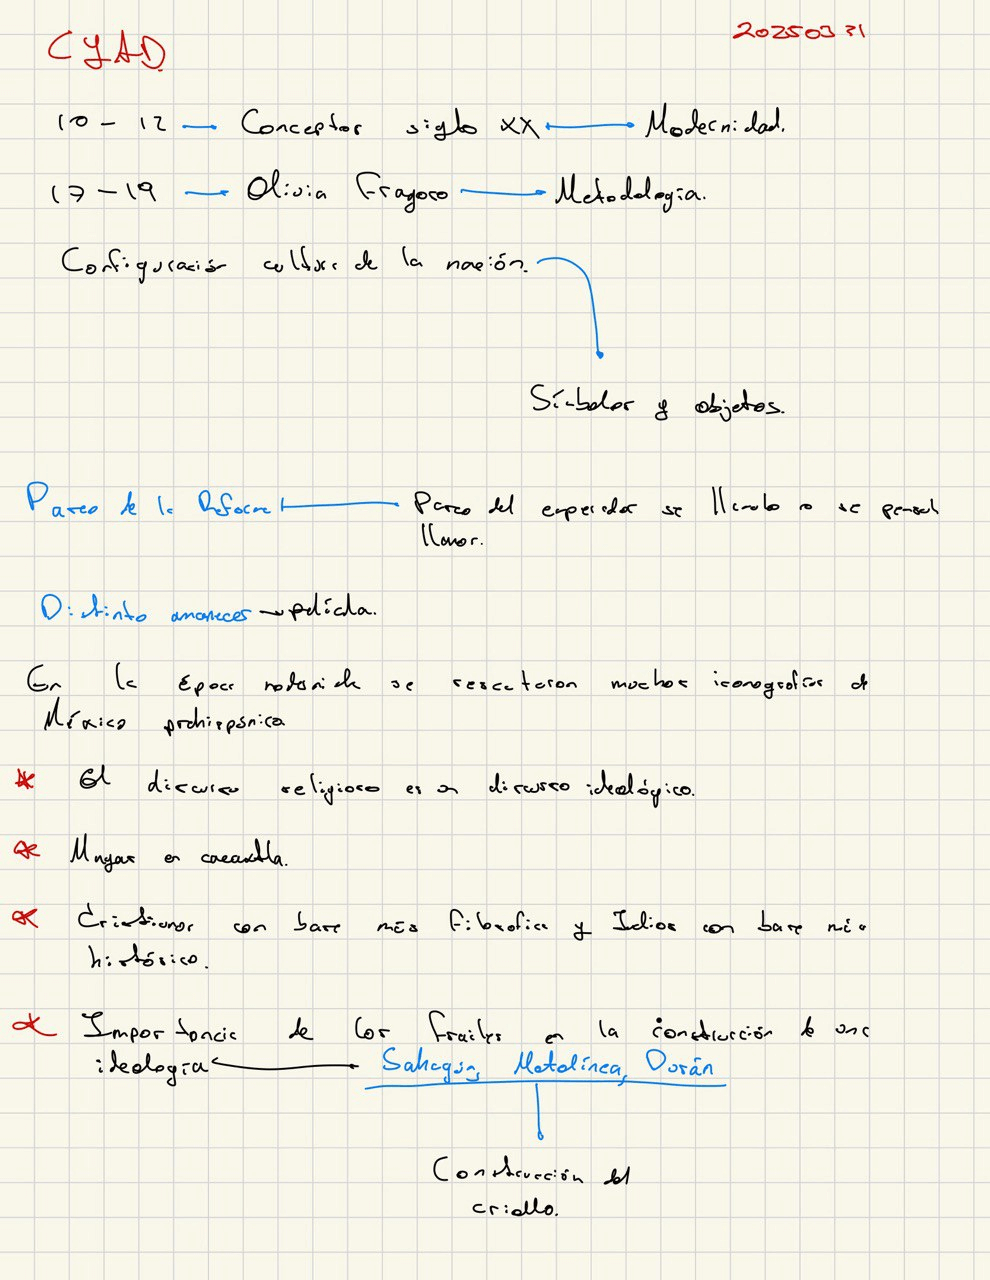 CYAD
20250331
10 - 12 Conceptos siglo XX Modernidad.
17 - 19 Olivia Fragoso Metodología.
Configuración cultural de la nación.
Símbolos y objetos.
Paseo de la Reforma Paseo del emperador se llamaba o se pensaba
llamar.
Distinto amanecer película.
En la época se rescataron muchos iconografías de
México prehispánica
El discurso religioso es un discurso ideológico.
en cacaxtla.
Cristianos con base más filosófica y Indios con base más
histórico.
Importancia de los frailes en la construcción de una
ideología Sahagún, Motolínea, Durán
Construcción del
criollo.